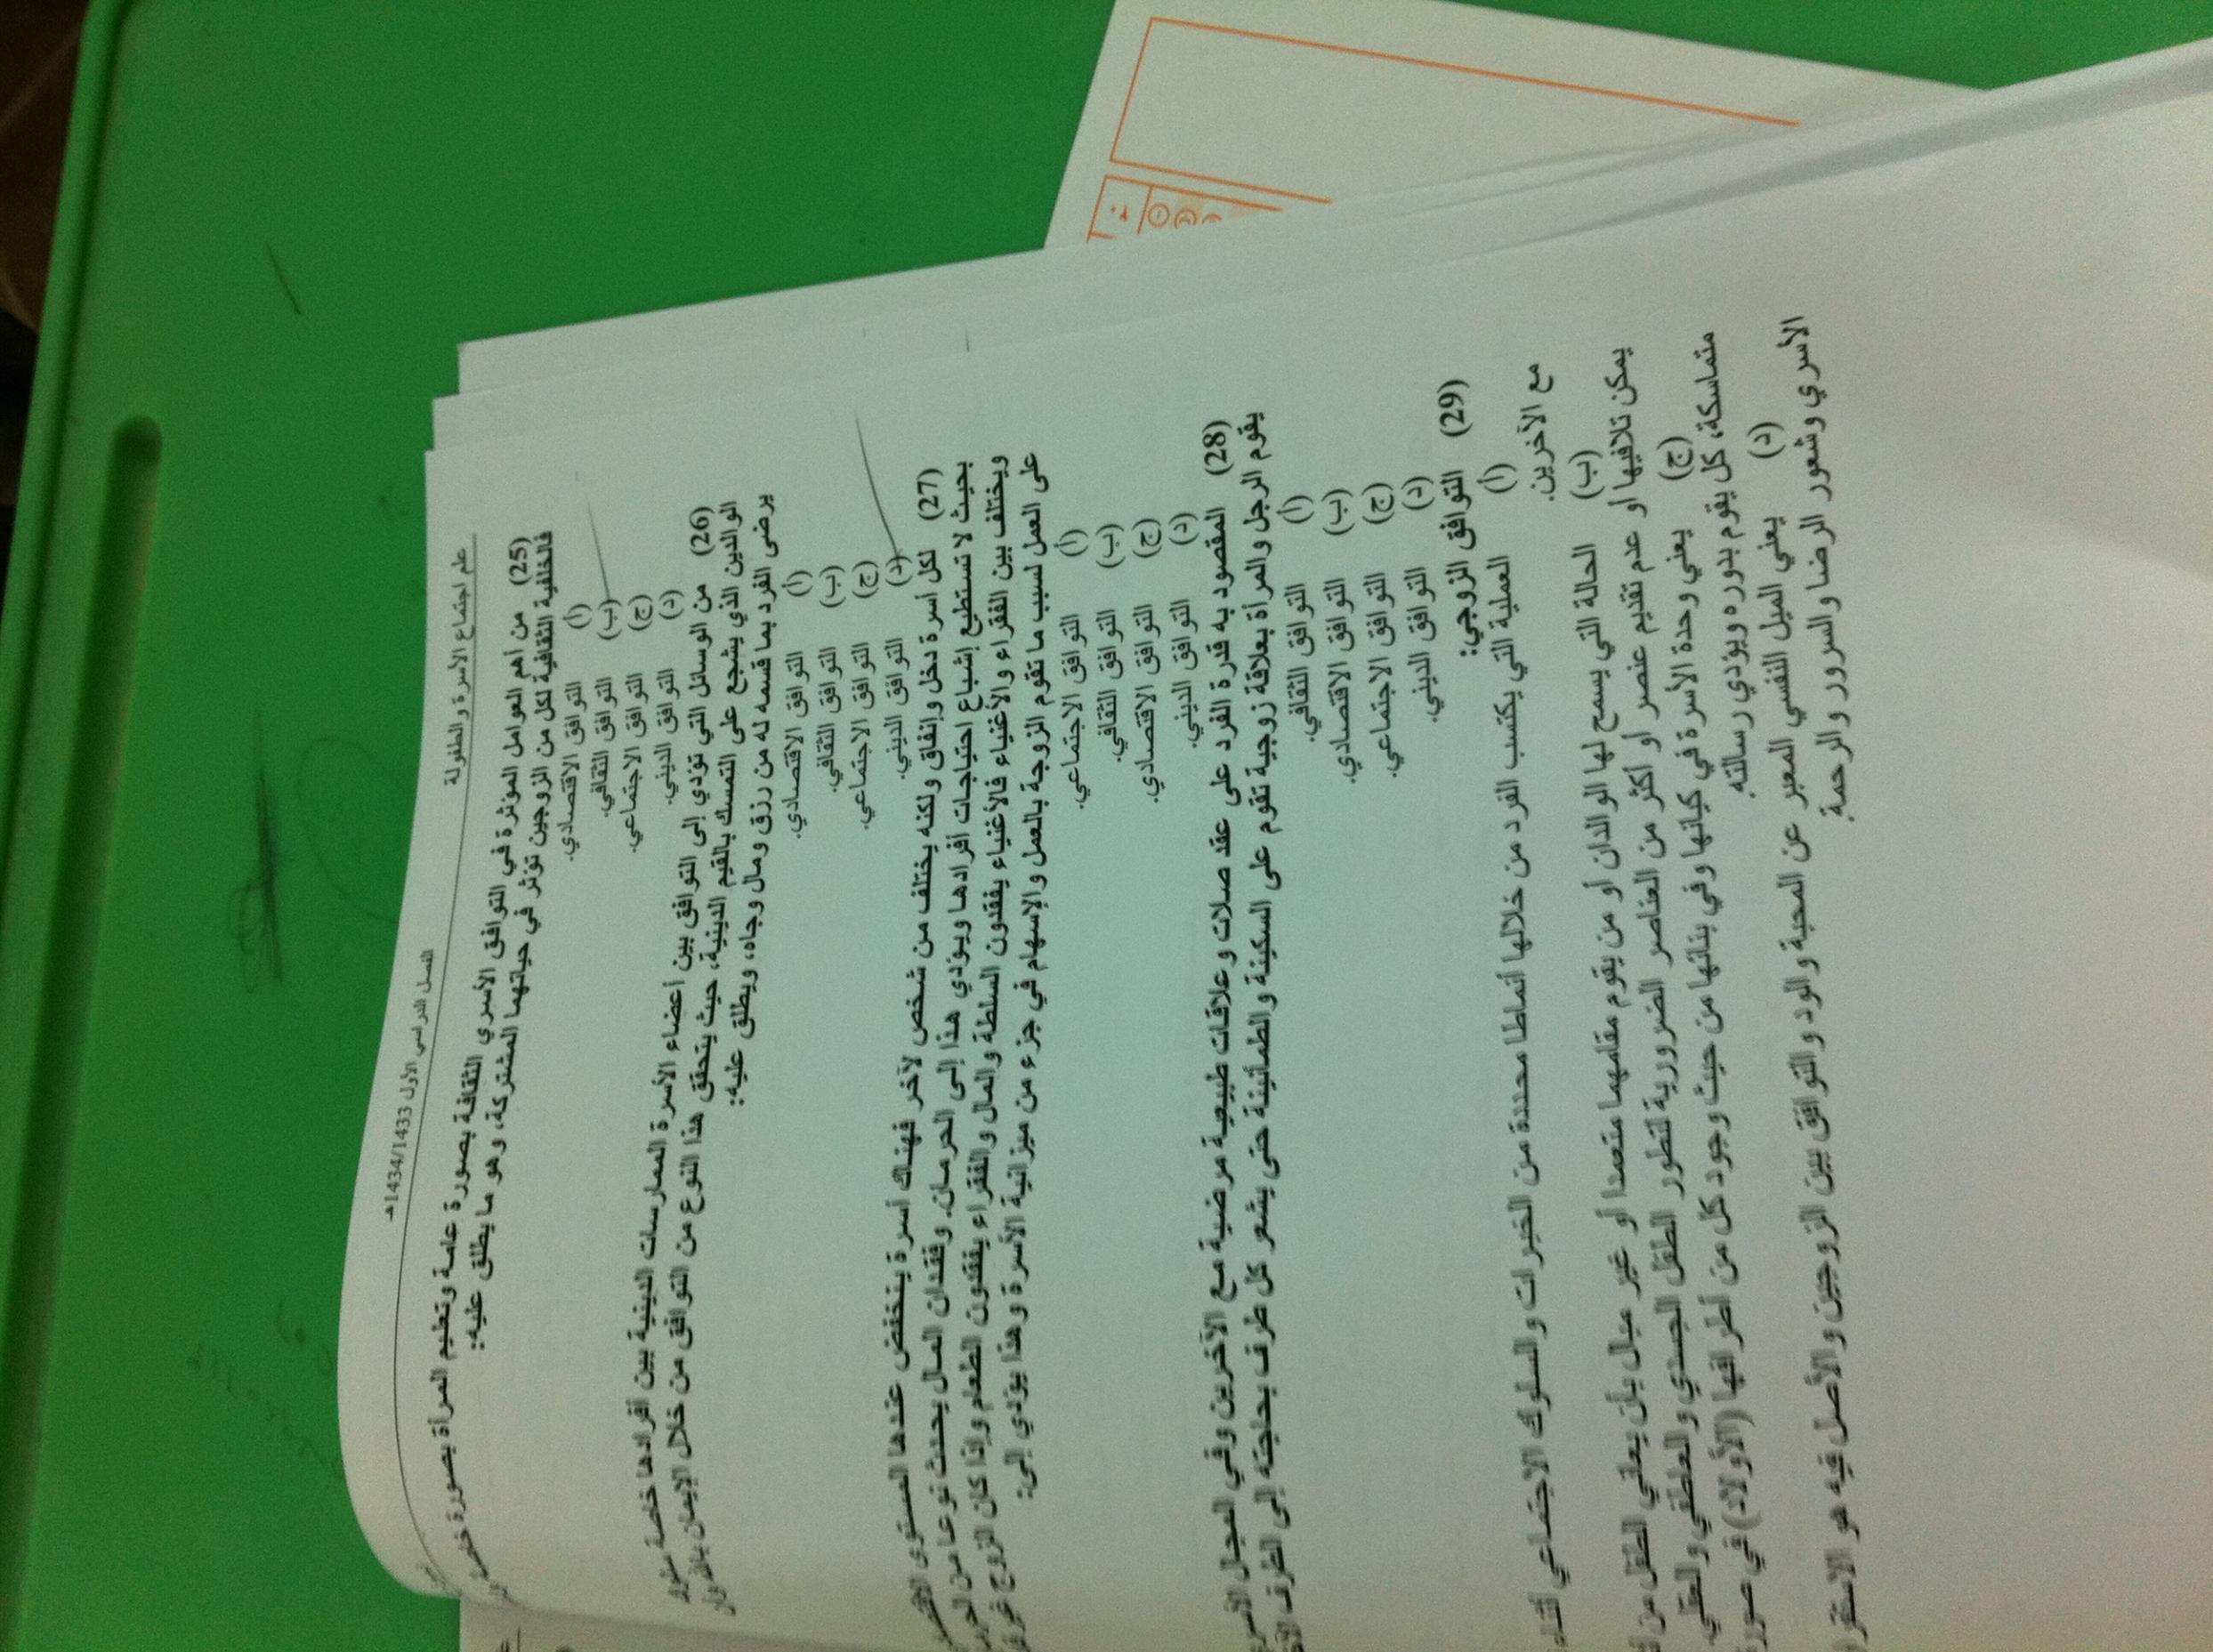 علم اجتماع الأسرة والطفولة
الفصل الدراسي الأول 1434/1433هـ
(25) من أهم العوامل المؤثرة في التوافق الأسري الثقافة بصورة عامة وتعليم المرأة بصورة
فالخلفية الثقافية لكل من الزوجين تؤثر في حياتهما المشتركة، وهو ما يطلق عليه:
(أ) التوافق الاقتصادي.
(ب) التوافق الثقافي.
(ج) التوافق الاجتماعي.
(د) التوافق الديني.
(26) من الوسائل التي تؤدي إلى التوافق بين أعضاء الأسرة الممارسات الدينية بين أفرادها خاصة
الوالدين الذي يشجع على التمسك بالقيم الدينية، حيث يتحقق هذا النوع من التوافق من خلال الإيمان
يرضى الفرد بما قسمه له من رزق ومال وجاه، ويطلق عليه:
(أ) التوافق الاقتصادي.
(ب) التوافق الثقافي.
(ج) التوافق الاجتماعي.
(د) التوافق الديني.
(27) لكل أسرة دخل وإنفاق ولكنه يختلف من شخص لآخر فهناك أسرة ينخفض عندها المستوى
بحيث لا تستطيع إشباع احتياجات أفرادها ويؤدي هذا إلى الحرمان. وفقدان المال يحدث نوعا من
ويختلف بين الفقراء والأغنياء فالأغنياء يفقدون السلطة والمال والفقراء يفقدون الطعام وإذا كان الزوج
على العمل لسبب ما تقوم الزوجة بالعمل والإسهام في جزء من ميزانية الأسرة وهذا يؤدي إلى:
(أ) التوافق الاجتماعي.
(ب) التوافق الثقافي.
(ج) التوافق الاقتصادي.
(د) التوافق الديني.
(28) المقصود به قدرة الفرد على عقد صلات وعلاقات طبيعية مرضية مع الآخرين وفي المجال
يقوم الرجل والمرأة بعلاقة زوجية تقوم على السكينة والطمأنينة حتى يشعر كل طرف بحاجته إلى الطرف
(أ) التوافق الثقافي.
(ب) التوافق الاقتصادي.
(ج) التوافق الاجتماعي.
(د) التوافق الديني.
(29) التوافق الزوجي:
(أ) العملية التي يكتسب الفرد من خلالها أنماطا محددة من الخبرات والسلوك الاجتماعي أثناء
مع الآخرين.
(ب) الحالة التي يسمح لها الوالدان أو من يقوم مقامهما متعمدا أو غير مبال بأن يعاني الطفل من
يمكن تلافيها أو عدم تقديم عنصر أو أكثر من العناصر الضرورية لتطور الطفل الجسدي والعاطفي والعقلي.
(ج) يعني وحدة الأسرة في كيانها وفي بنائها من حيث وجود كل من أطرافها (الأولاد) في صورة
متماسكة، كل يقوم بدوره ويؤدي رسالته
(د) يعني الميل النفسي المعبر عن المحبة والود والتوافق بين الزوجين والأصل فيه هو
الأسري وشعور الرضا والسرور والرحمة.